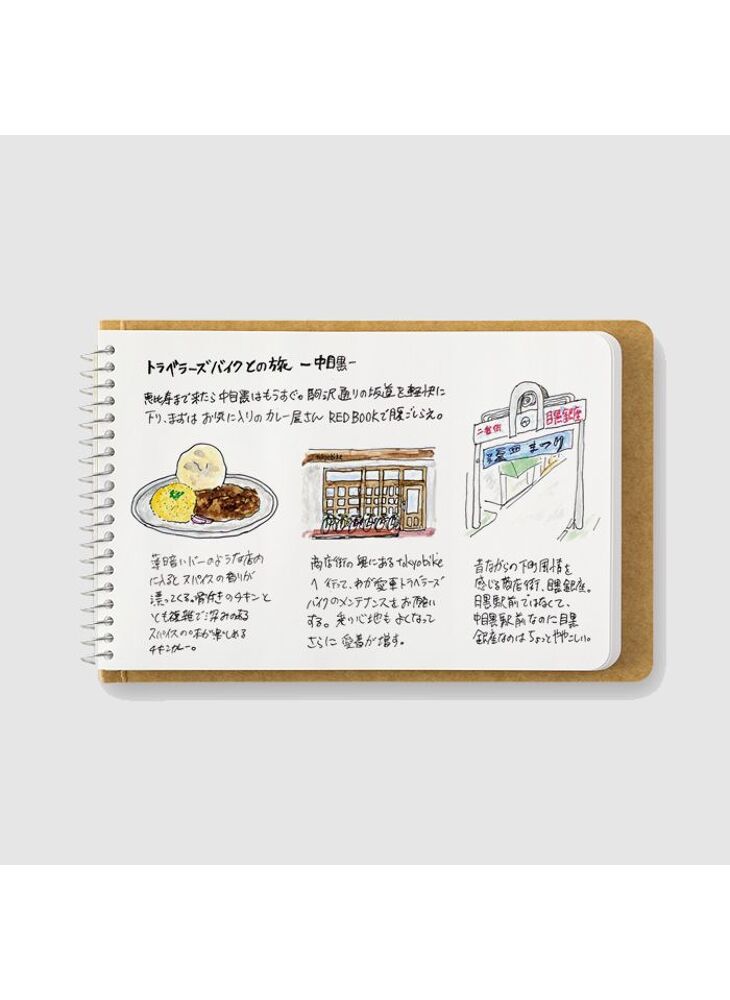 トラベラーズバイクとの旅 ー中目黒ー
恵比寿まで来たら中目黒はもうすぐ。駒沢通りの坂道を軽快に
下り、まずはお気に入りのカレー屋さん RED BOOKで腹ごしらえ。
薄暗いバーのような店内
に入ると スパイスの香りが
漂ってくる。骨付きのチキンと
とも複雑で深みのある
スパイスの味が楽しめる
チキンカレー。
tokyobike
商店街の奥にあるtokyobike
へ行って、わが愛車トラベラーズ
バイクのメンテナンスをお願い
する。乗り心地もよくなって
さらに愛着が増す。
目黒銀座
まつり
昔ながらの下町風情を
感じる商店街、目黒銀座。
目黒駅前ではなくて、
中目黒駅前なのに目黒
銀座なのはちょっとややこしい。